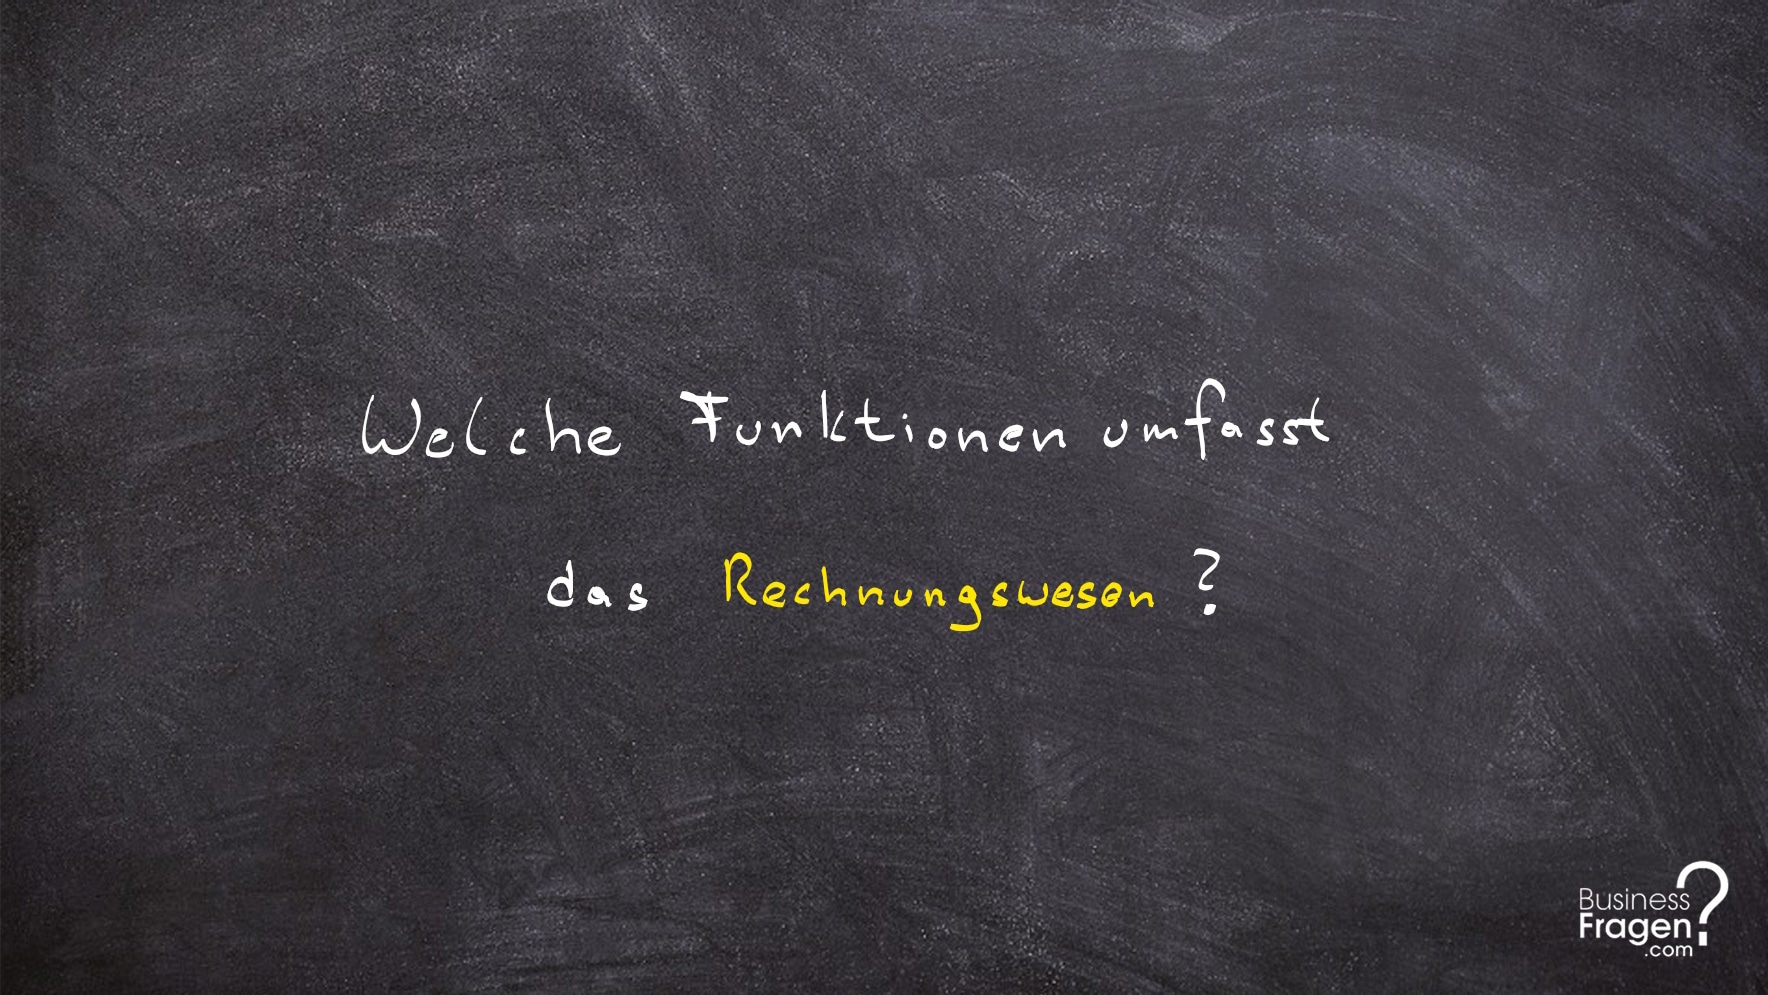 Welche Funktionen umfasst
das Rechnungswesen?
Business
Fragen?
.com